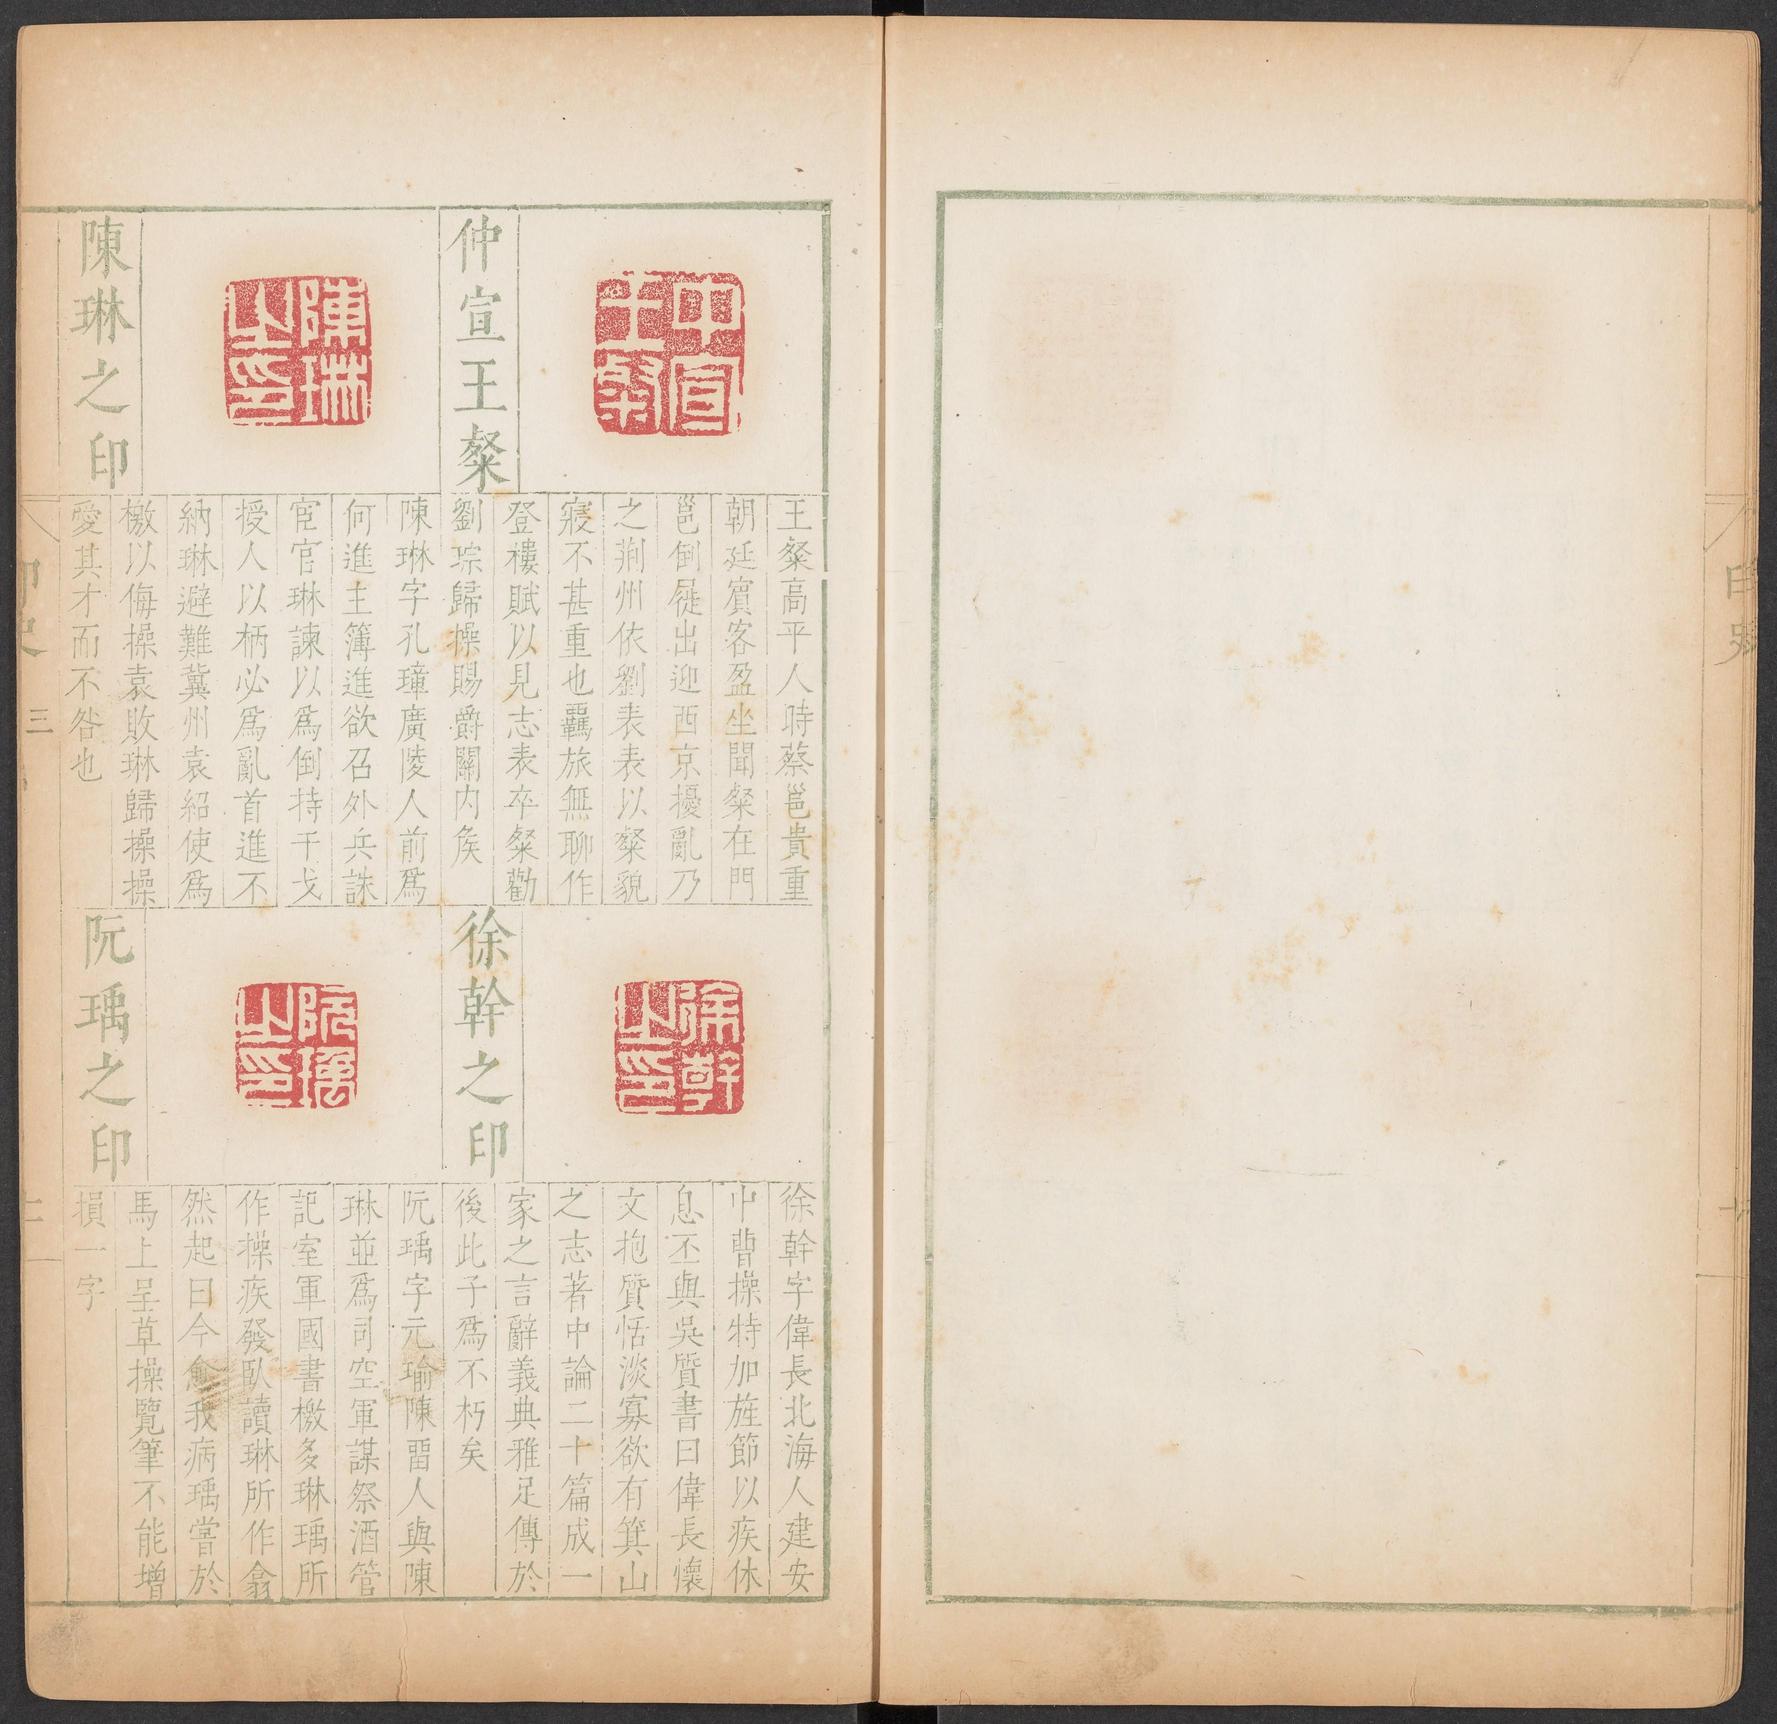 仲宣王粲
王粲高平人時蔡邕貴重
朝廷賓客盈坐聞粲在門
邕倒屣出迎西京擾亂乃
之荆州依劉表表以粲貌
寢不甚重也羈旅無聊作
登樓賦以見志表卒粲勸
劉琮歸操賜爵關内矦
陳琳之印
陳琳字孔璋廣陵人前爲
何進主簿進欲召外兵誅
宦官琳諫以爲倒持干戈
授人以柄必爲亂首進不
納琳避難冀州袁紹使爲
檄以侮操袁敗琳歸操操
愛其才而不咎也
徐幹之印
徐幹字偉長北海人建安
中曹操特加旌節以疾休
息丕與吳質書曰偉長懷
文抱質恬淡寡欲有箕山
之志著中論二十篇成一
家之言辭義典雅足傳於
後此子爲不朽矣
阮瑀之印
阮瑀字元瑜陳畱人與陳
琳並爲司空軍謀祭酒管
記室軍國書檄多琳瑀所
作操疾發臥讀琳所作翕
然起曰今愈我病瑀嘗於
馬上呈草操覽筆不能增
損一字
仲宣王粲
陳琳之印
徐幹之印
阮瑀之印
印史
三